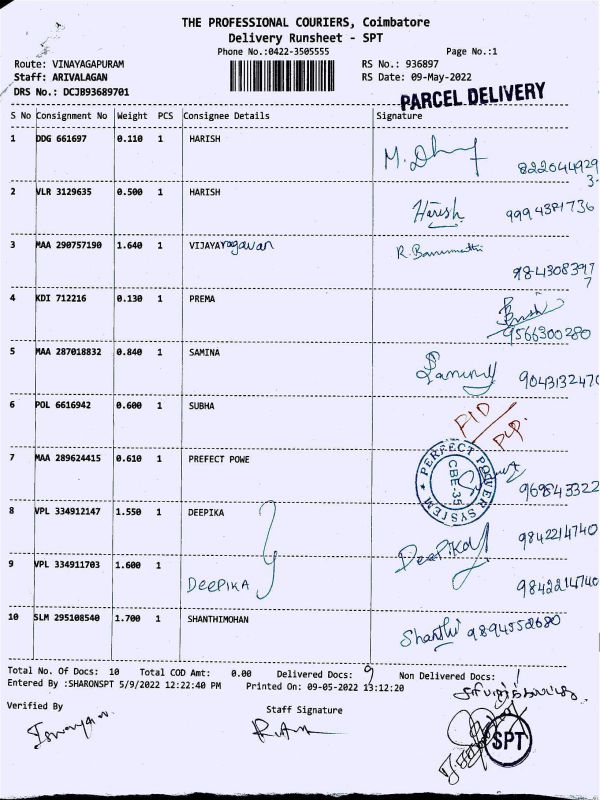 THE PROFESSIONAL COURIERS, Coimbatore
Delivery Runsheet - SPT
Phone No.:0422-3505555 Page No.:1
Route: VINAYAGAPURAM RS No.: 936897
Staff: ARIVALAGAN RS Date: 09-May-2022
DRS No.: DCJB93689701
PARCEL DELIVERY
S No Consignment No Weight PCS Consignee Details Signature
1 DDG 661697 0.110 1 HARISH
822044929
3-
2 VLR 3129635 0.500 1 HARISH Harish 9994381736
3 MAA 290757190 1.640 1 VIJAYAragavan R. Banumathi
984308397
7
4 KDI 712216 0.130 1 PREMA
9566300280
5 MAA 287018832 0.840 1 SAMINA 9043132470
6 POL 6616942 0.600 1 SUBHA
7 MAA 289624415 0.610 1 PREFECT POWE
PERFECT POWER SYSTEM
CBE-35
969843322
8 VPL 334912147 1.550 1 DEEPIKA Deepika 9842214740
9 VPL 334911703 1.600 1
DEEPIKA 9842214740
10 SLM 295108540 1.700 1 SHANTHIMOHAN
Shanthi 9894552680
Total No. Of Docs: 10 Total COD Amt: 0.00 Delivered Docs: 9 Non Delivered Docs: 1
Entered By :SHARONSPT 5/9/2022 12:22:40 PM Printed On: 09-05-2022 13:12:20
Verified By Staff Signature
SPT